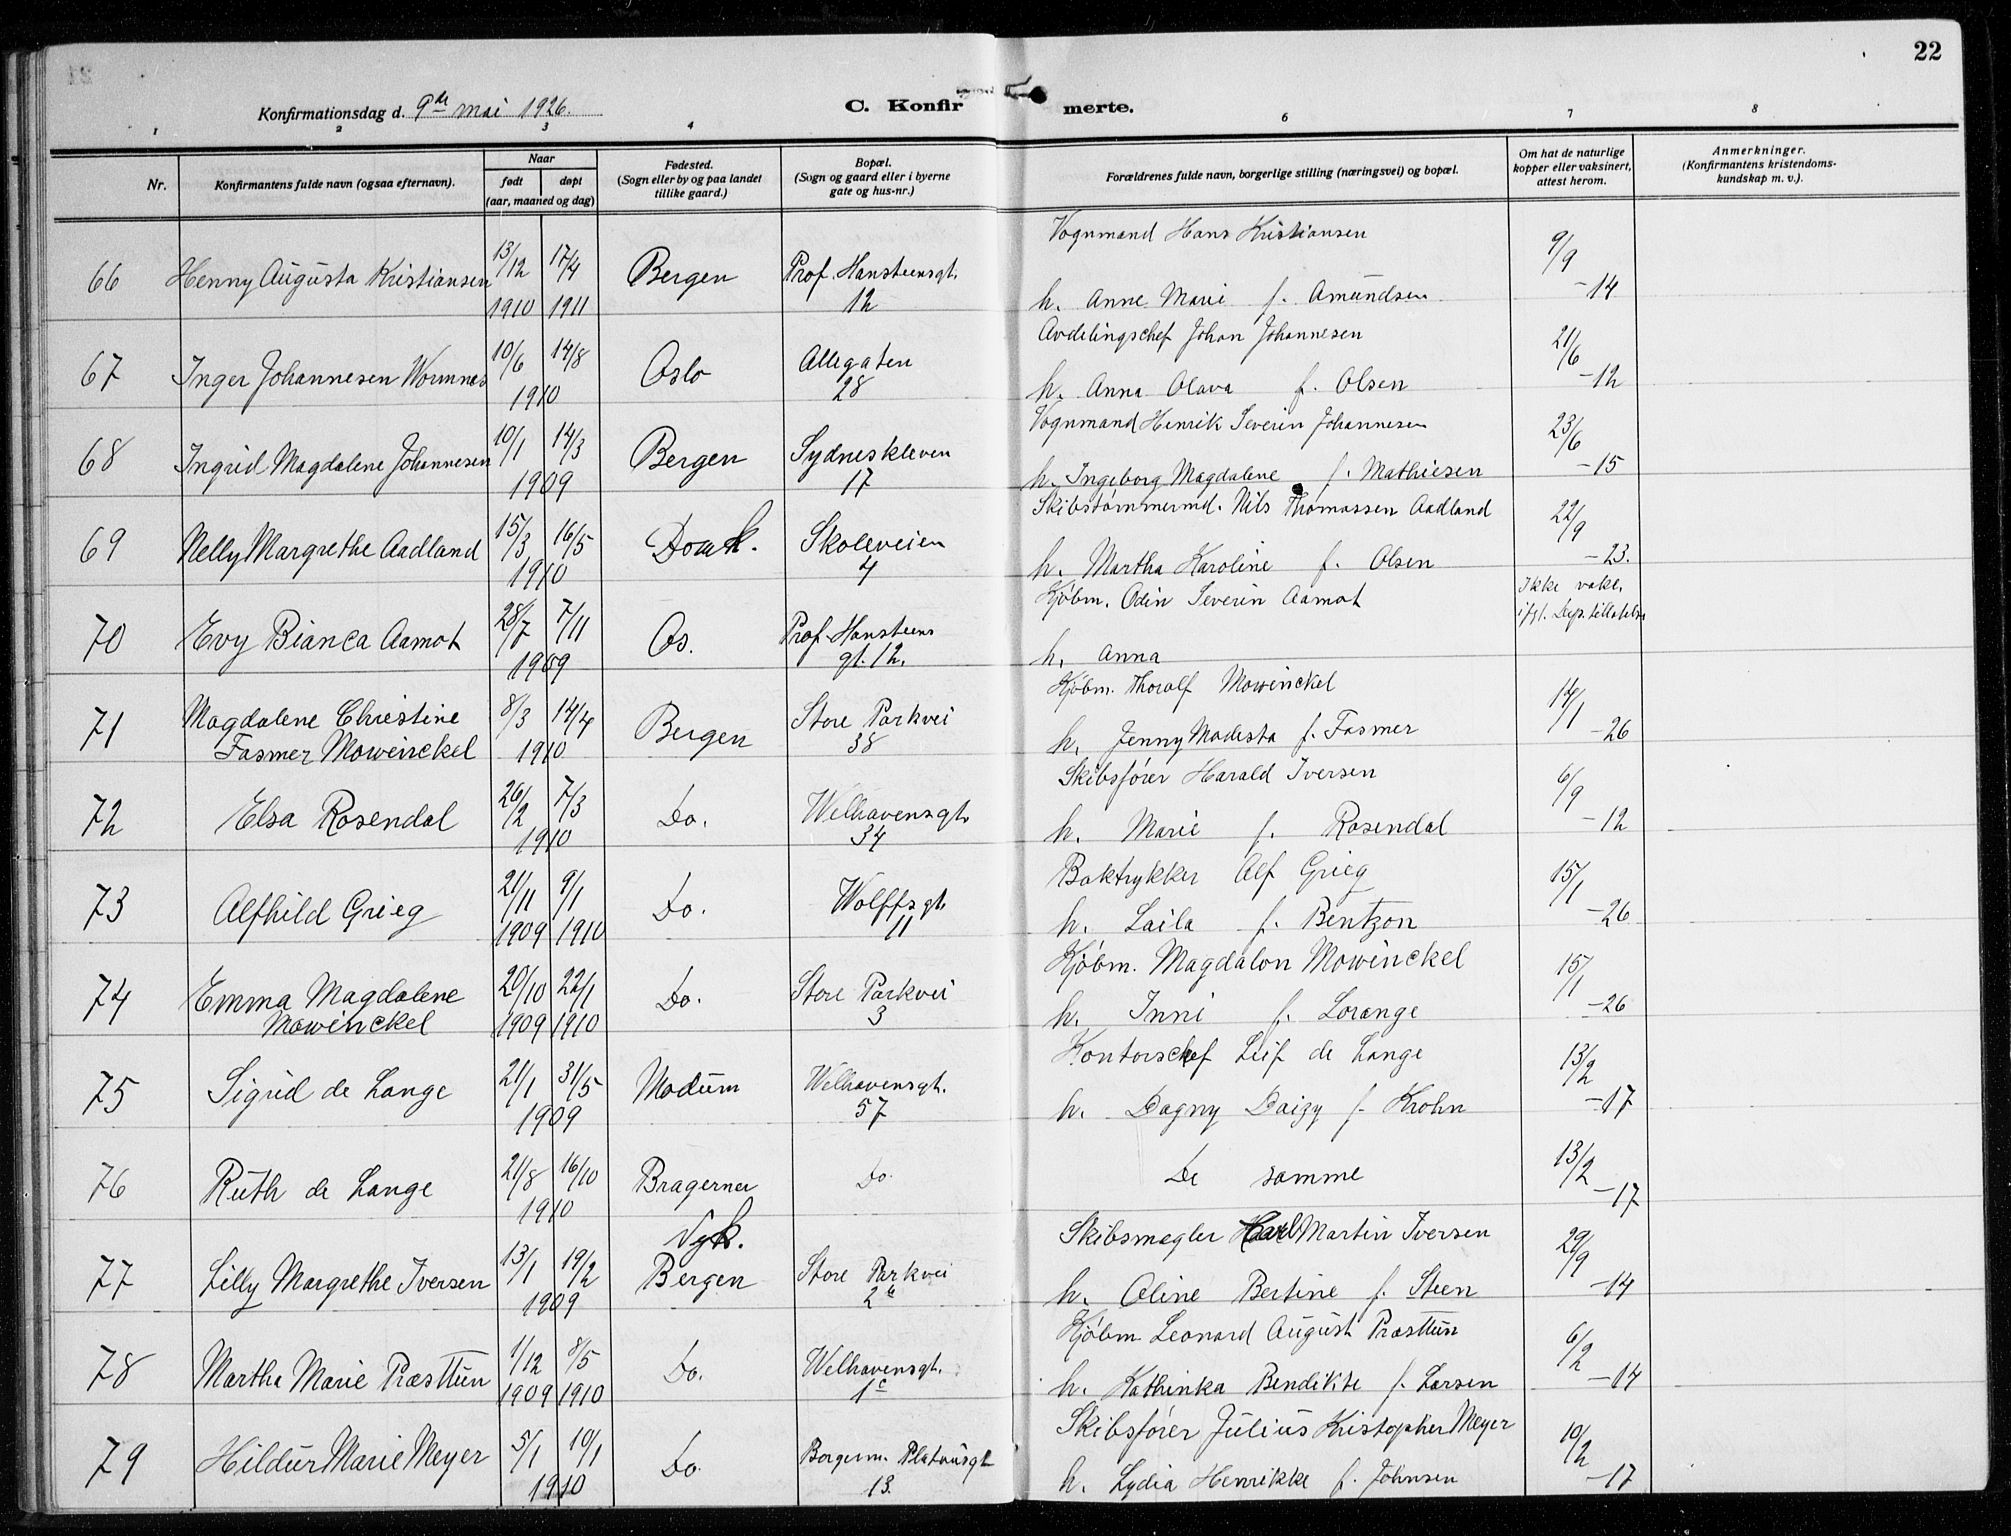 22
Konfirmationsdag d. 9de mai 1926.
C. Konfirmerte.
1 2 3 4 6 7 8
Nr.
Konfirmantens fulde navn (ogsaa efternavn).
Naar
født døpt
(aar, maaned og dag)
Fødested.
(Sogn eller by og paa landet
tillike gaard.)
Bopæl.
(Sogn og gaard eller i byerne
gate og hus-nr.)
Forældrenes fulde navn, borgerlige stilling (næringsvei) og bopæl.
Om hat de naturlige
kopper eller vaksinert,
attest herom.
Anmerkninger.
(Konfirmantens kristendoms-
kundskap m. v.).
Vognmand Hans Kristiansen
66 Henny Augusta Kristiansen 13/12 17/4 Bergen Prof. Hansteensgt. 9/9
1910 1911 12 h. Anne Marie f. Amundsen -14
Avdelingschef Johan Johannesen
67 Inger Johannesen Wormnes 10/6 14/8 Oslo Allegaten 21/6
1910 28 h. Anna Olava f. Olsen -12
Vognmand Henrik Severin Johannesen
68 Ingrid Magdalene Johannesen 10/1 14/3 Bergen Sydneskleven 23/6
1909 17 h. Ingeborg Magdalene f. Mathiesen -15
Skibstømmermd. Nils Thomassen Aadland
69 Nelly Margrethe Aadland 15/3 16/5 Domk. Skoleveien 22/9
1910 4 h. Martha Karoline f. Olsen -23.
Kjøbm. Odin Severin Aamot Ikke vaks.
70 Evy Bianca Aamot 28/7 7/11 Os. Prof. Hansteens ifgl. Dep. tillatelse
1909 gt. 12. h. Anna
Kjøbm. Thoralf Mowinckel
71 Magdalene Christine 8/3 14/4 Bergen Store Parkvei 14/1
Fasmer Mowinckel 1910 38 h. Jenny Modesta f. Fasmer -26
Skibsfører Harald Iversen
72 Elsa Rosendal 26/2 7/3 Do. Welhavensgt. 6/9
1910 34 h. Marie f. Rosendal -12
Boktrykker Alf Grieg
73 Alfhild Grieg 21/11 9/1 Do. Wolffsgt. 15/1
1909 1910 11 h. Laila f. Bentzon -26
Kjøbm. Magdalon Mowinckel
74 Emma Magdalene 20/10 22/1 Do. Store Parkvei 15/1
Mowinckel 1909 1910 3 h. Inni f. Lorange -26
Kontorschef Leif de Lange
75 Sigrid de Lange 21/1 31/5 Modum Welhavensgt. 13/2
1909 57 h. Dagny Daizy f. Krohn -17
76 Ruth de Lange 21/8 16/10 Bragernes Do. De samme 13/2
1910 -17
Nyk. Skibsmegler Carl Martin Iversen
77 Lilly Margrethe Iversen 13/1 19/2 Bergen Store Parkvei 29/9
1909 2a h. Oline Bertine f. Steen -14
Kjøbm. Leonard August Præsttun
78 Martha Marie Præsttun 1/12 8/5 Do. Welhavensgt. 6/2
1909 1910 1c h. Kathinka Bendikte f. Larsen -14
Skibsfører Julius Kristopher Meyer
79 Hildur Marie Meyer 5/1 10/1 Do. Borgerm. Platousgt 10/2
1910 13. h. Lydia Henrikke f. Johnsen -17